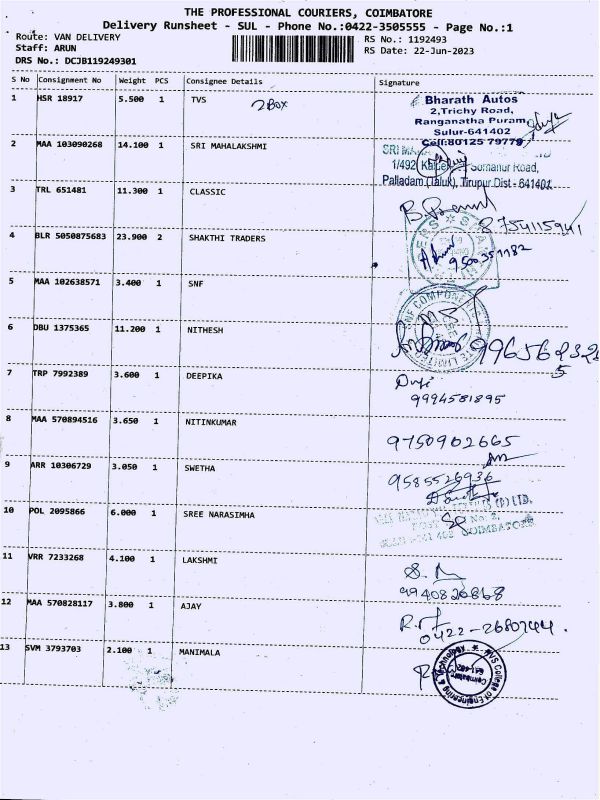 THE PROFESSIONAL COURIERS, COIMBATORE
Delivery Runsheet - SUL - Phone No.:0422-3505555 - Page No.:1
Route: VAN DELIVERY RS No.: 1192493
Staff: ARUN RS Date: 22-Jun-2023
DRS No.: DCJB119249301
S No Consignment No Weight PCS Consignee Details Signature
1 HSR 18917 5.500 1 TVS 2 BOX
Bharath Autos
2,Trichy Road,
Ranganatha Puram,
Sulur-641402
Cell:80125 79779
2 MAA 103090268 14.100 1 SRI MAHALAKSHMI
SRI
1/492 Somanur Road,
Palladam (Taluk), Tirupur Dist - 641402
3 TRL 651481 11.300 1 CLASSIC
8754115941
4 BLR 5050875683 23.900 2 SHAKTHI TRADERS
9500351182
5 MAA 102638571 3.400 1 SNF
SNF
6 DBU 1375365 11.200 1 NITHESH
7 TRP 7992389 3.600 1 DEEPIKA
9994581895
8 MAA 570894516 3.650 1 NITINKUMAR
9750902665
9 ARR 10306729 3.050 1 SWETHA
9585526936
10 POL 2095866 6.000 1 SREE NARASIMHA
(P) LTD.
COIMBATORE
11 VRR 7233268 4.100 1 LAKSHMI
9940826868
12 MAA 570828117 3.800 1 AJAY
0422-2680744.
13 SVM 3793703 2.100 1 MANIMALA
College of Engineering & Technology
Coimbatore
641-402